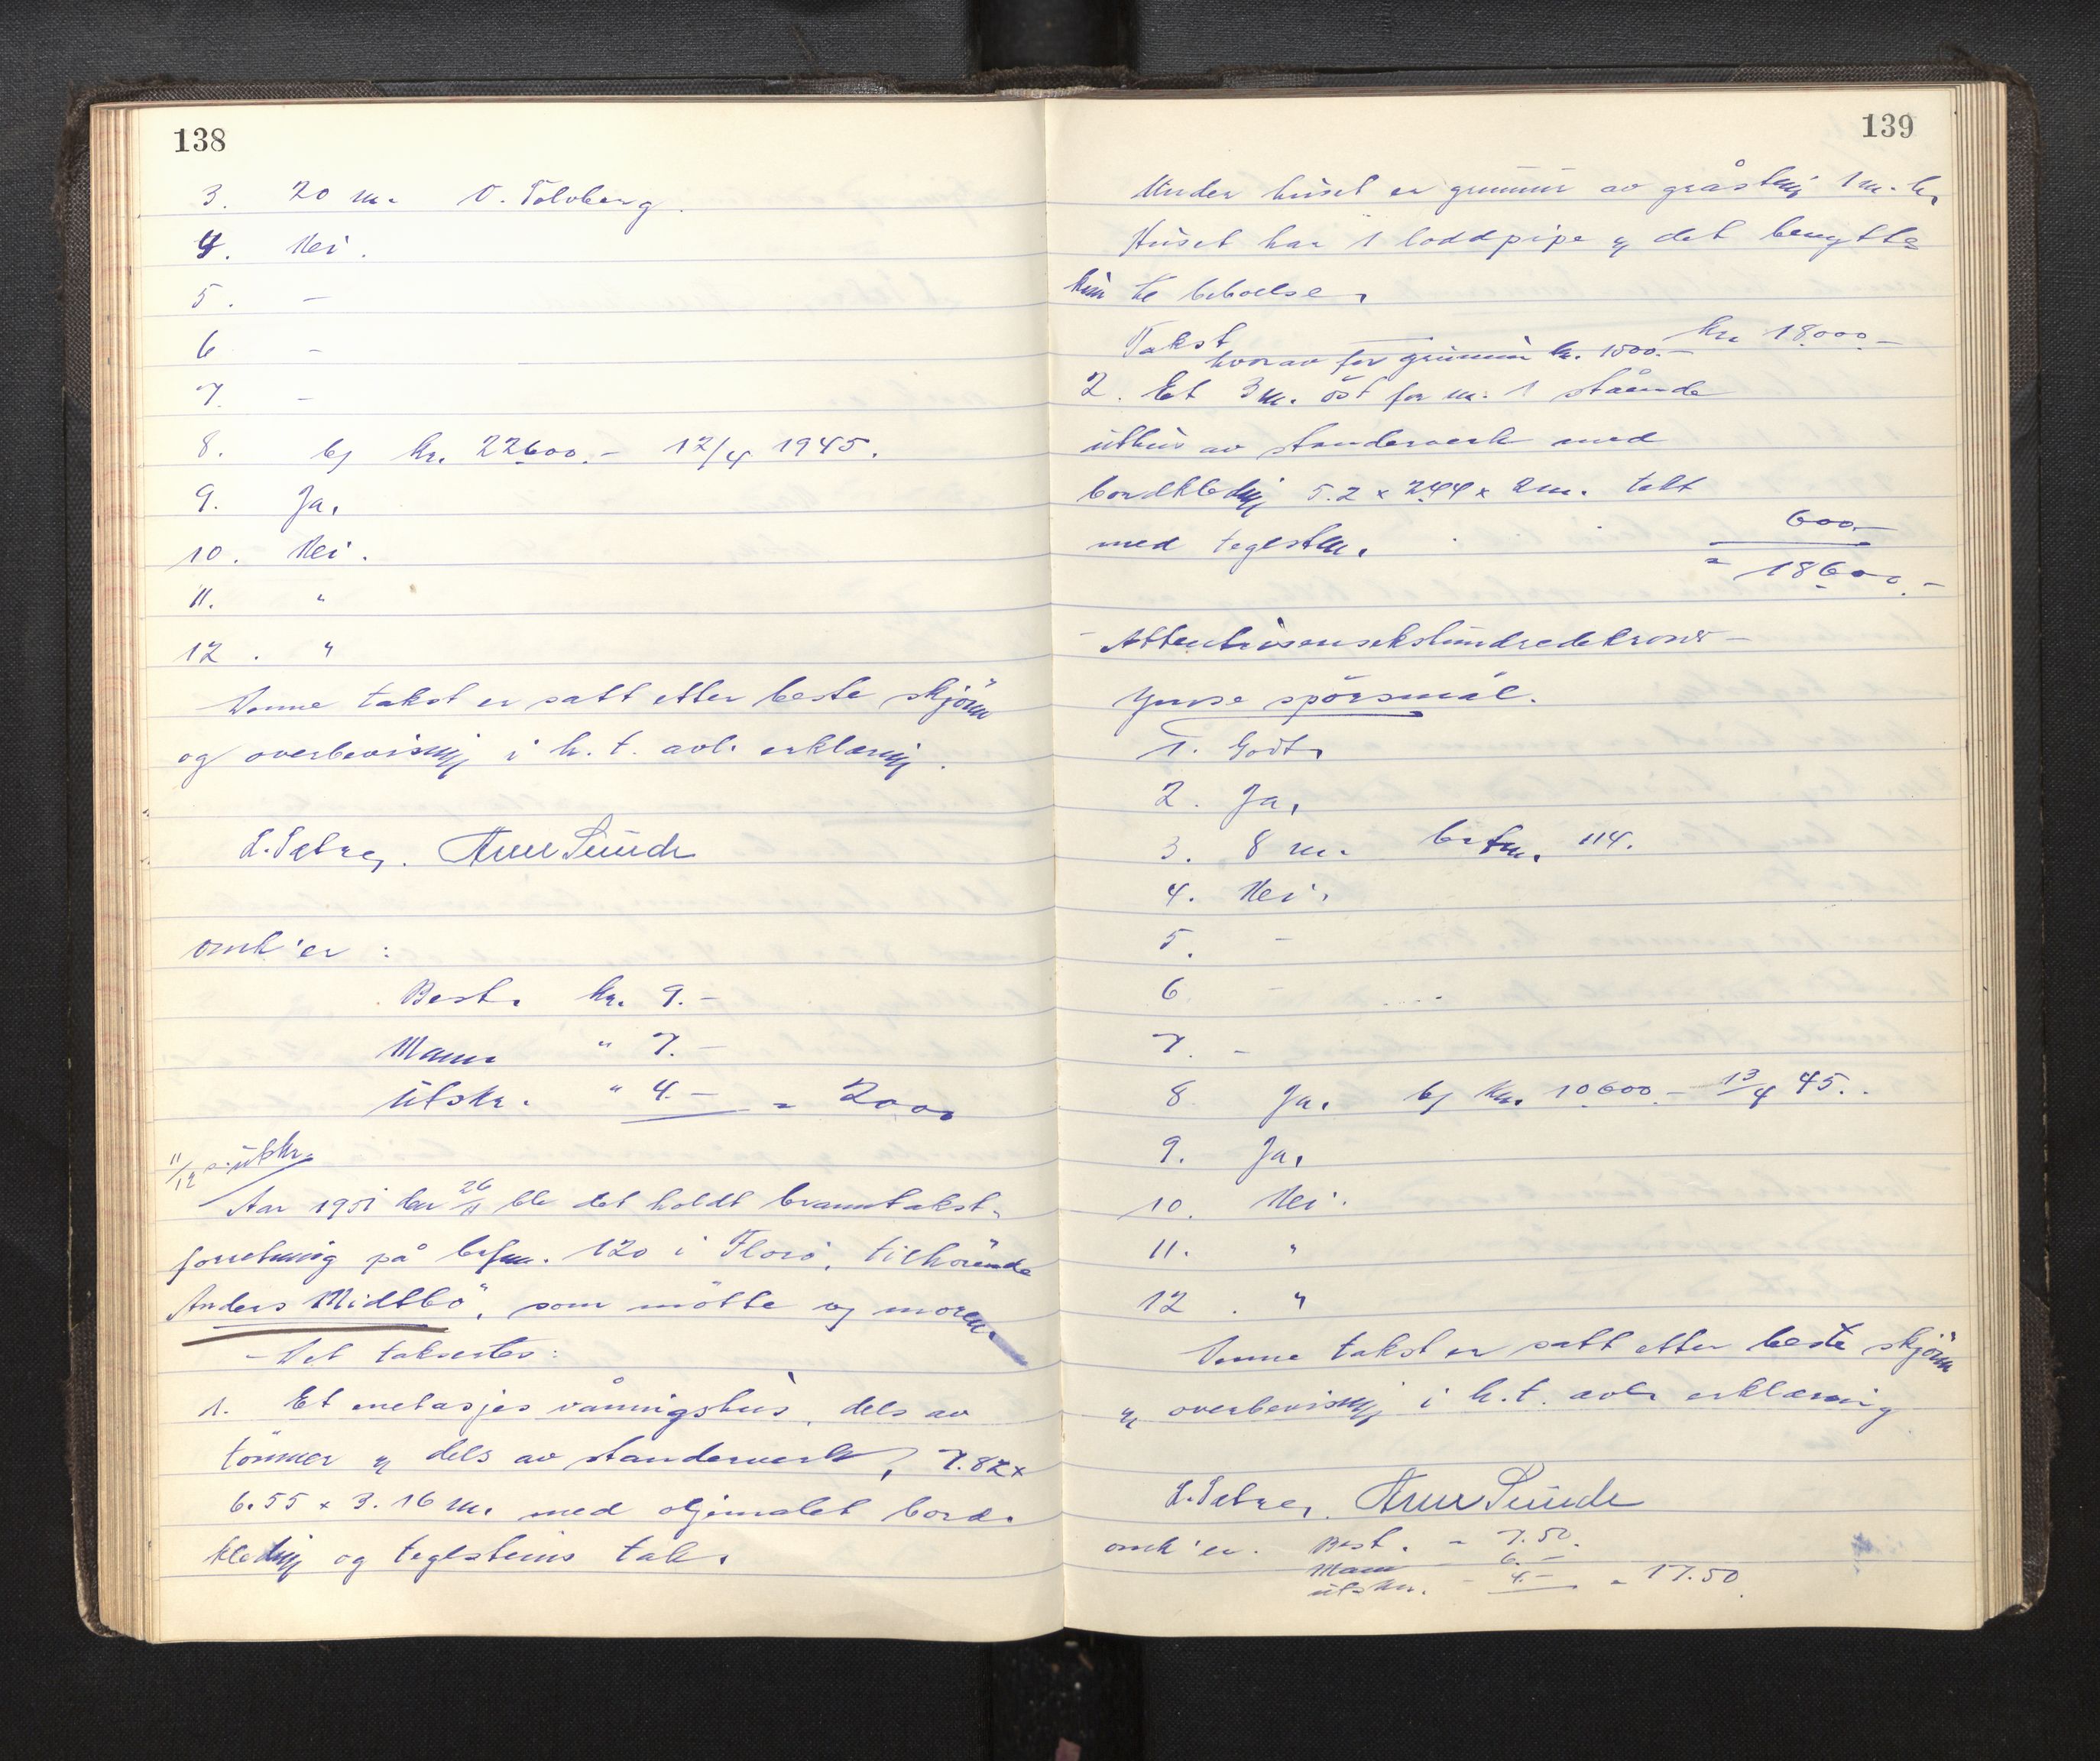 138
3. 20 m. O. Tolvberg.
4. Nei.
5. -
6 -
7. -
8. bj kr. 22600.- 12/4 1945.
9. Ja.
10. Nei.
11. "
12. "
Denne takst er satt etter beste skjönn
og overbevisning i h. t. avl. erklæring.
L. Sætre, Arne Sunde
omk'er :
Best. kr. 9.-
Mann " 7.-
Utskr. " 4.- = 20.00
11/12 s. utskr.
Aar 1951 den 26/11 ble det holdt branntakst-
forretning på brfnr. 120 i Florö, tilhörende
Anders Midtbö, som mötte og moren.
- Det taksertes:
1. Et enetasjes våningshus, dels av
tömmer og dels av standerverk, 7.82 x
6.55 x 3.16 m. med oljemalet bord-
kledning og teglsteins tak.
139
Under huset er grunnur av gråstein 1 m. h.
Huset har 1 loddpipe og det benyttes
kun til beboelse.
Takst kr. 18000.-
hvorav for grunnur kr. 1000.-
2. Et 3 m. öst for nr. 1 stående
uthus av standerverk med
bordkledning 5.2 x 2.44 x 2 m. tekt
med teglsten. 600.-
= 18600.-
- Attentusensekshundredekroner -
Ymse spörsmål.
1. Godt.
2. Ja.
3. 8 m. brfnr. 114.
4. Nei.
5. -
6 -
7. -
8 Ja. bj kr. 10600.- 13/4 45.
9. Ja.
10. Nei.
11. "
12. "
Denne takst er satt etter beste skjönn
og overbevisning i h.t. avl. erklæring
L. Sætre, Arne Sunde
omk'er. Best. - 7.50.
Mann - 6.-
utskr. - 4.- = 17.50.